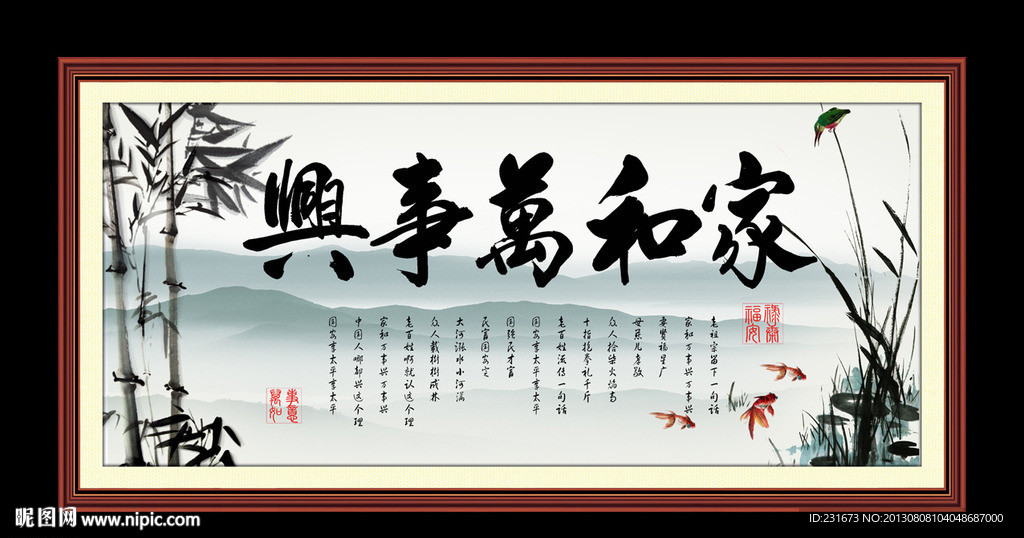 家和萬事興
老祖宗留下一句话
家和万事兴万事兴
妻贤福星广
母慈儿孝敬
众人拾柴火焰高
十指抱拳礼千斤
老百姓流传一句话
国安享太平享太平
国强民才富
民富国安定
大河涨水小河满
众人栽树树成林
老百姓啊就认这个理
家和万事兴万事兴
中国人哪都兴这个理
国安享太平享太平
福安
事意
萬如
昵图网 www.nipic.com
ID:231673 NO:20130808104048687000